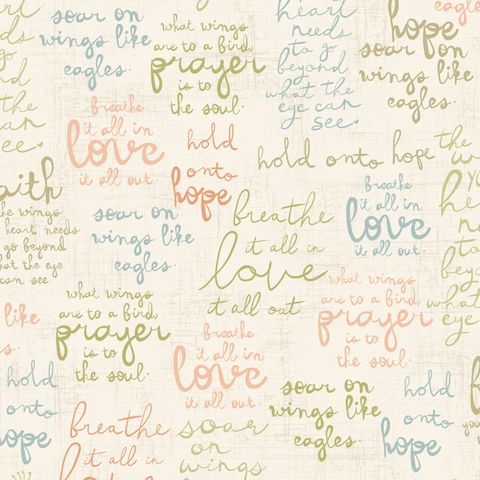 soar on
wings like
eagles.
what wings
are to a bird,
prayer
is to
the soul.
heart
needs
to go
beyond
what the
eye can
see
hope
soar on
wings like
eagles.
breathe
it all in
love
it all out.
hold
onto
hope
hold onto hope
the
heart
needs
to
beyond
what
eye
faith
the wings
heart needs
go beyond
what the eye
can see
soar on
wings like
eagles.
breathe
it all in
love
it all out
breathe
it all in
love
it all out.
what wings
are to a bird,
prayer
is to
the soul.
what wings
are to a bird,
prayer
is to
the soul.
like
breathe
it all in
love
it all out.
hold
onto
hope
breathe
all in
soar
on
wings
soar on
wings like
eagles.
hold
onto
hope